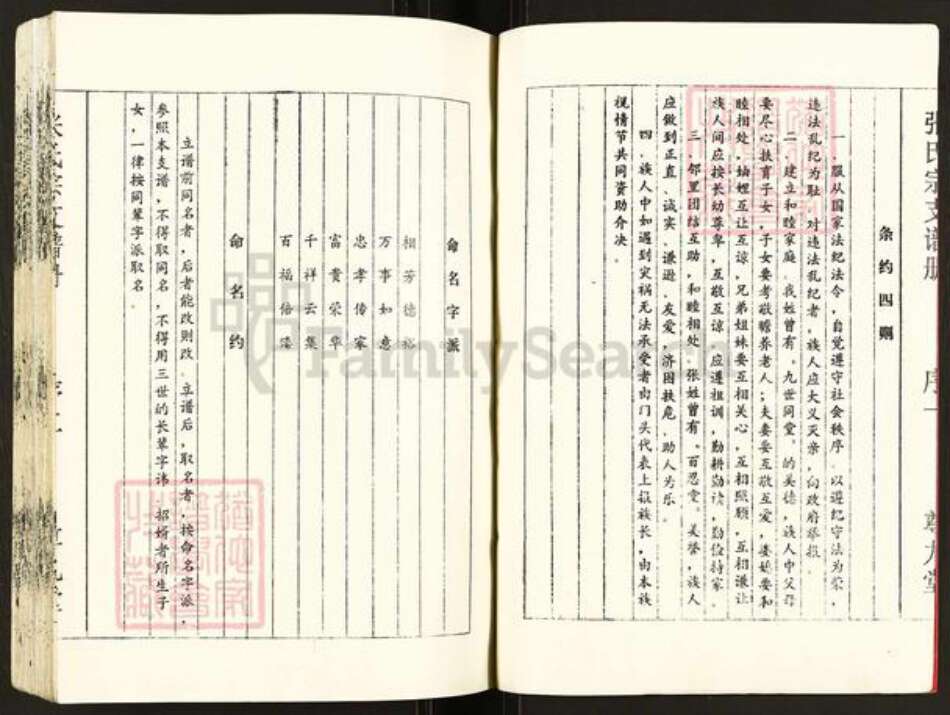 张氏宗支谱册
序一
条约四则
一、服从国家法纪法令，自觉遵守社会秩序。以遵纪守法为荣，
违法乱纪为耻。对违法乱纪者，族人应大义灭亲，向政府举报。
二、建立和睦家庭。我姓曾有“九世同堂”的美德，族人中父母
要尽心扶育子女，子女要孝敬赡养老人；夫妻要互敬互爱，婆媳要和
睦相处，妯娌互让互谅，兄弟姐妹要互相关心，互相照顾，互相谦让
族人间应按长幼尊卑，互敬互谅。应遵祖训，勤耕勤读，勤俭持家。
三、邻里团结互助，和睦相处。张姓曾有“百忍堂”美誉，族人
应做到正直、诚实、谦逊、友爱，济困扶危，助人为乐。
四、族人中如遇到灾祸无法承受者由门头代表上报族长，由本族
视情节共同资助介决。
命名字派
相芳德裕
万事如意
忠孝传家
富贵荣华
千祥云集
百福倍臻
命名约
立谱前同名者，后者能改则改。立谱后，取名者，按命名字派，
参照本支谱，不得取同名，不得用三世的长辈字讳。招婿者所生子
女，一律按同辈字派取名。
FamilySearch